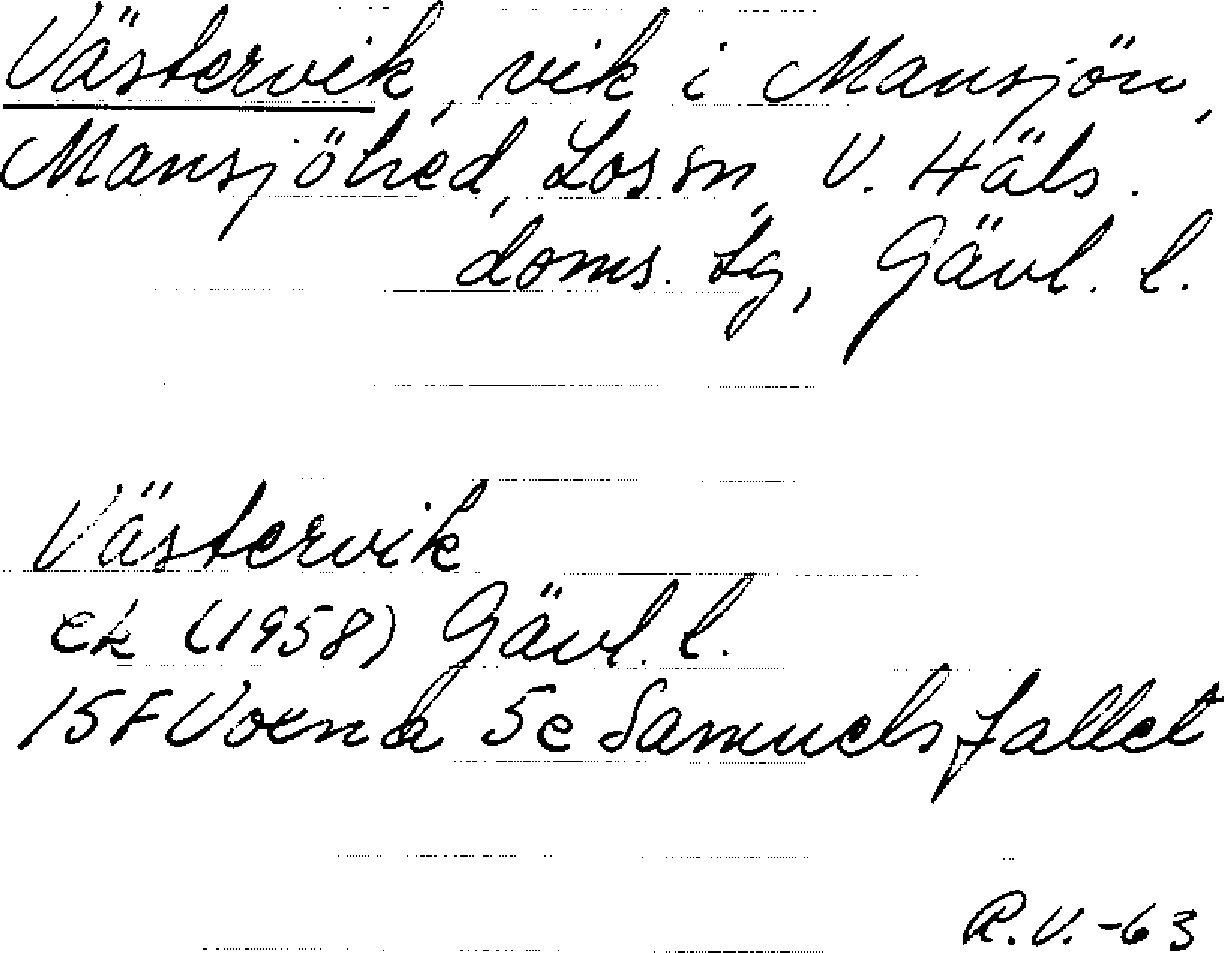 Västervik, vik i Mansjön,
Mansjöhed, Los sn, V. Häls.
doms. Lg, Gävl. l.
Västervik
ek (1958) Gävl. l.
15F Voxna 5e Samuelsfallet
R.V.-63